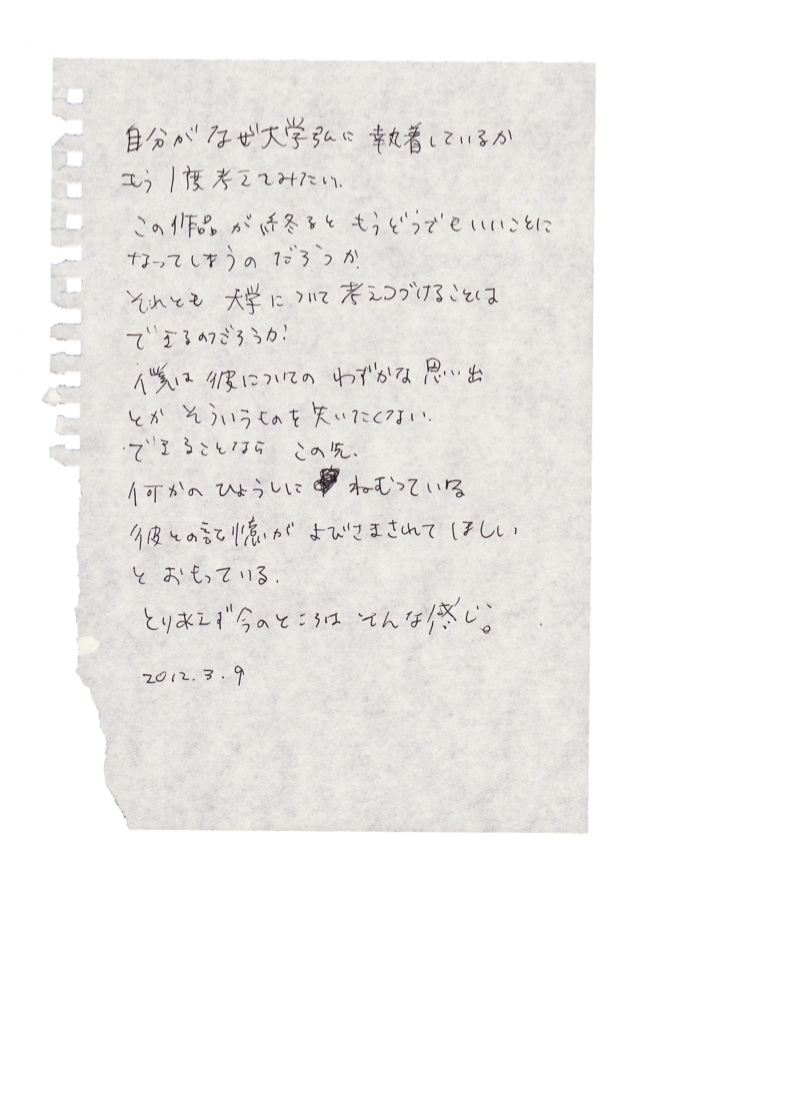 自分がなぜ大学弘に執着しているか
もう1度考えてみたい。
この作品が終るともうどうでもいいことに
なってしまうのだろうか。
それとも大学について考えつづけることは
できるのだろうか?
僕は彼についてのわずかな思い出
とかそういうものを失いたくない。
できることならこの先、
何かのひょうしにねむっている
彼との記憶がよびさまされてほしい
とおもっている.
とりあえず今のところはそんな感じ。
2012.3.9